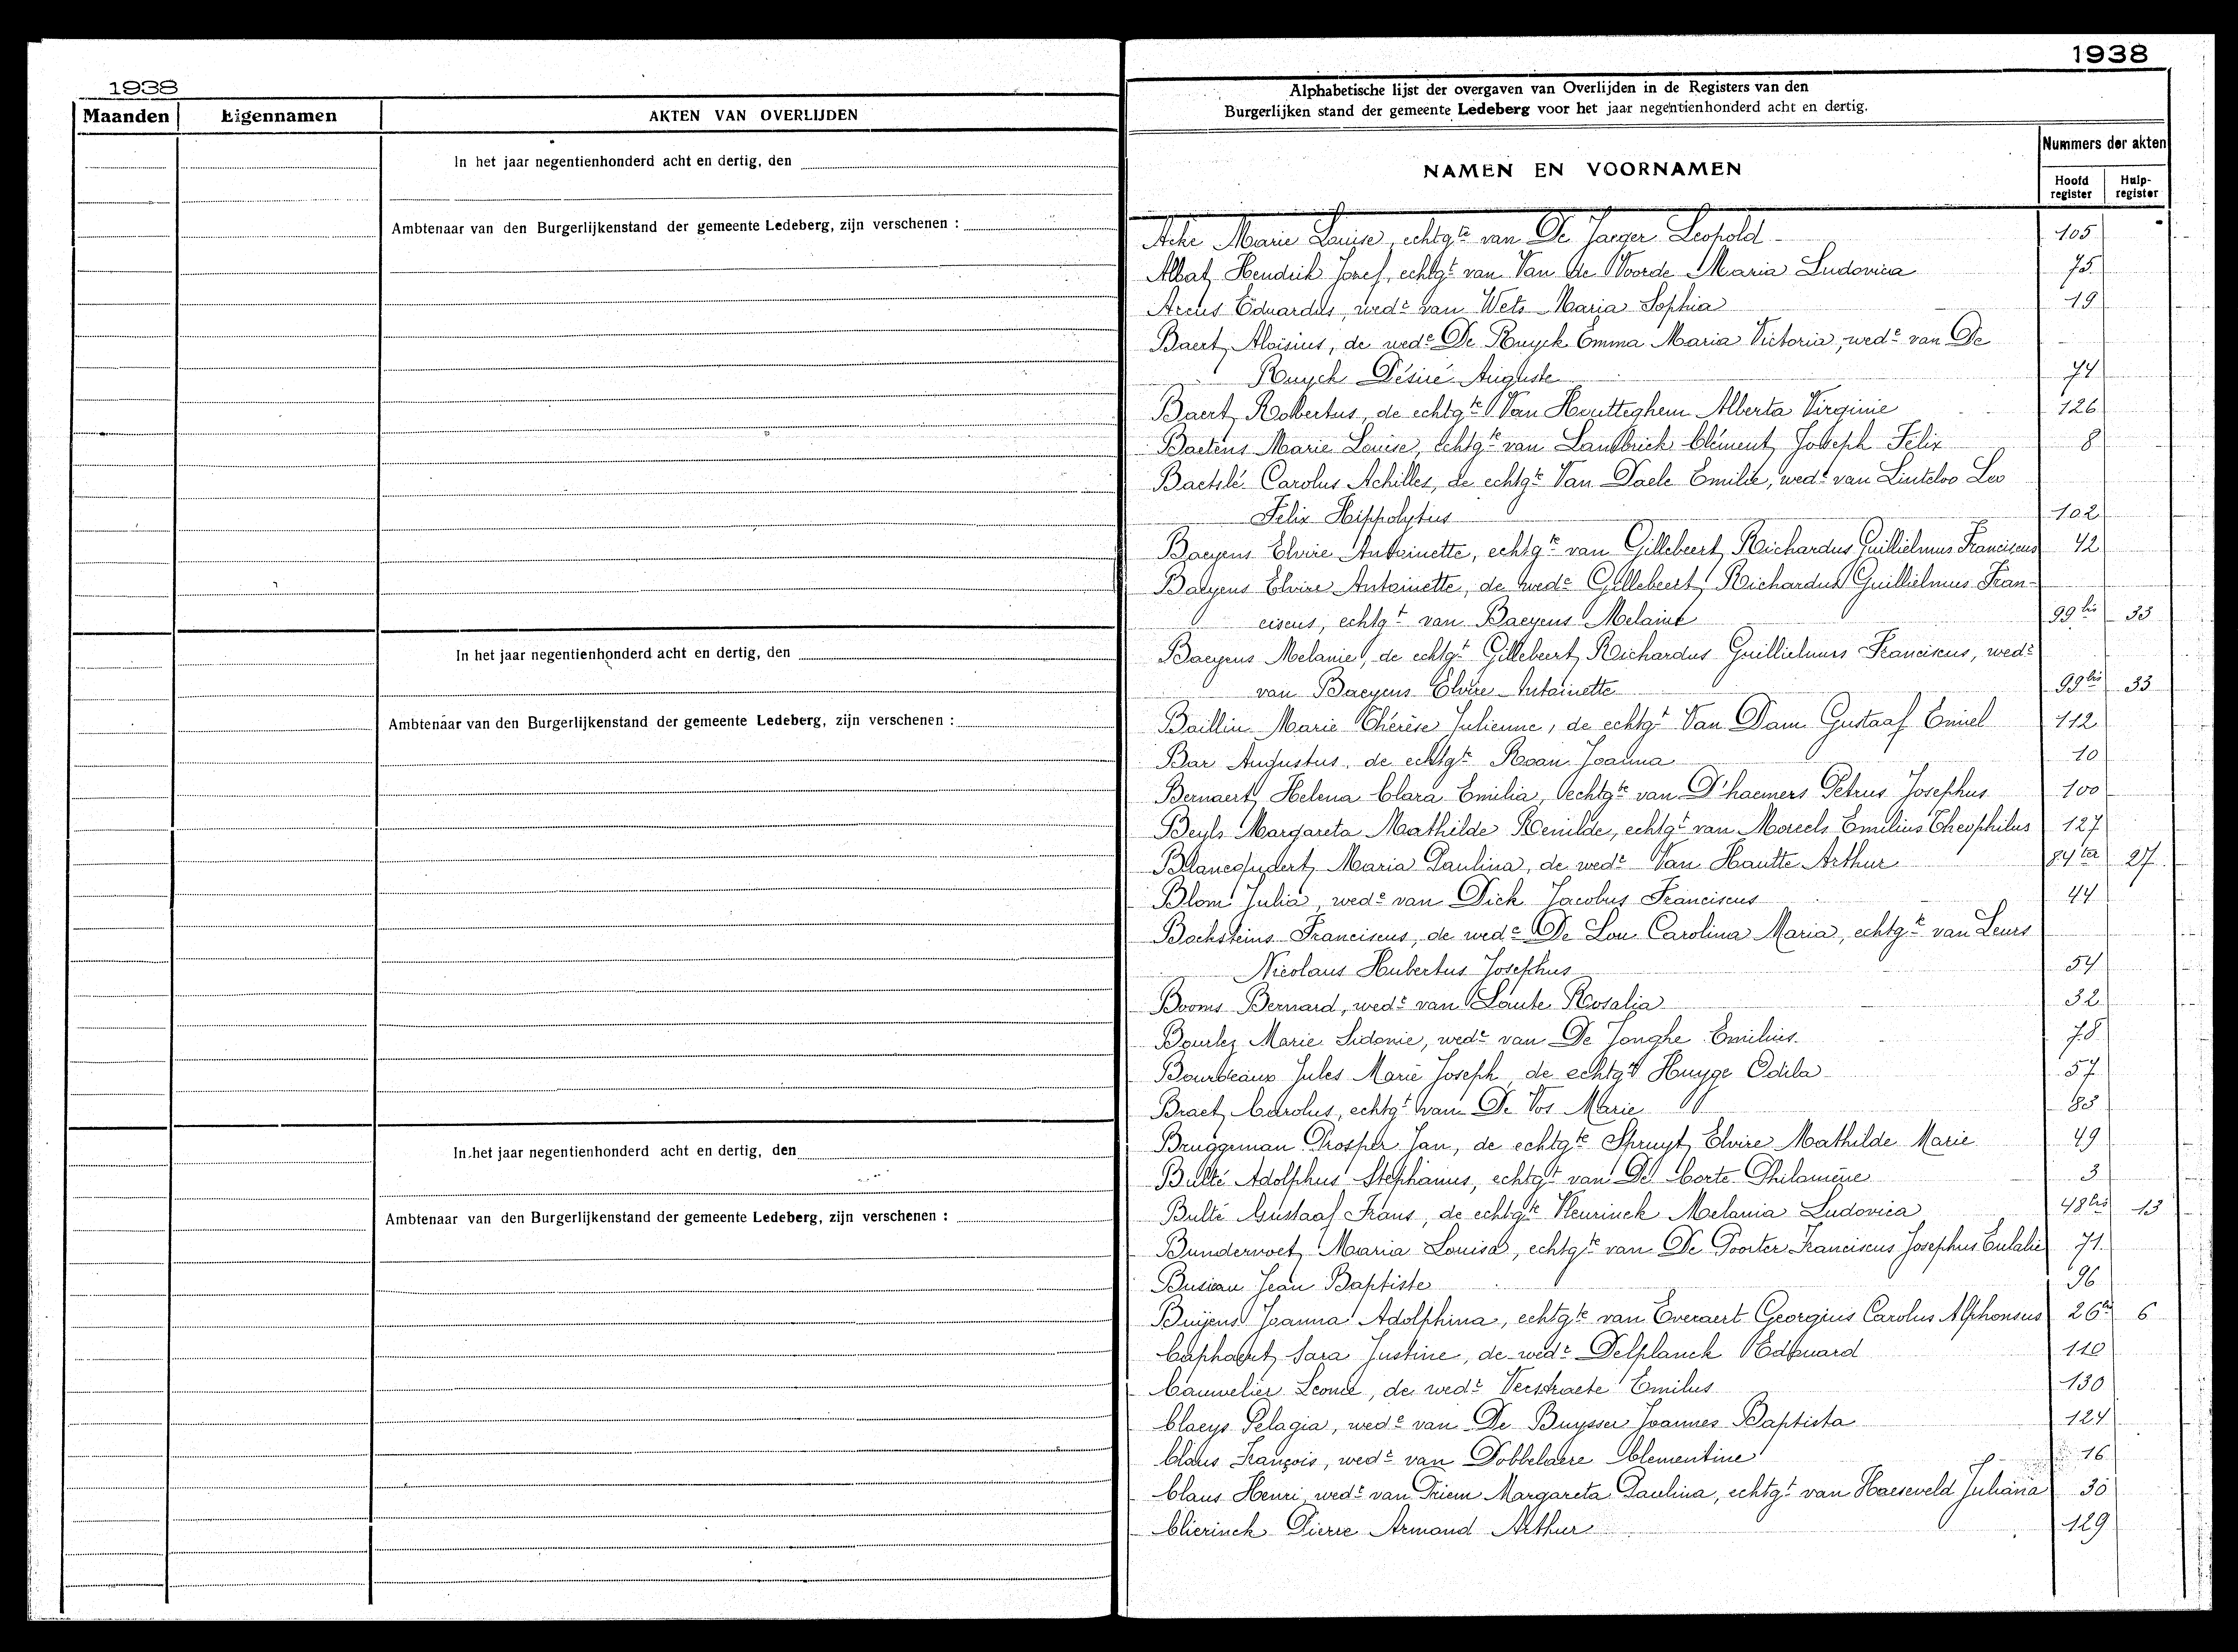 1938
Maanden Eigennamen AKTEN VAN OVERLIJDEN
In het jaar negentienhonderd acht en dertig, den
Ambtenaar van den Burgerlijkenstand der gemeente Ledeberg, zijn verschenen :
In het jaar negentienhonderd acht en dertig, den
Ambtenaar van den Burgerlijkenstand der gemeente Ledeberg, zijn verschenen :
In het jaar negentienhonderd acht en dertig, den
Ambtenaar van den Burgerlijkenstand der gemeente Ledeberg, zijn verschenen :
1938
Alphabetische lijst der overgaven van Overlijden in de Registers van den
Burgerlijken stand der gemeente Ledeberg voor het jaar negentienhonderd acht en dertig.
NAMEN EN VOORNAMEN
Nummers der akten
Hoofd register Hulp-register
Marie Louise, echtgte van De Jaeger Leopold 105
Albat Hendrik Jozef, echtgt van Van de Voorde Maria Ludovica 75
Arens Eduardus, wedr van Wets Maria Sophia 19
Baert Aloisius, de wede De Ruyck Emma Maria Victoria, wede van De
Ruyck Désiré Auguste 74
Baert Robertus, de echtgte Van Houtteghem Alberta Virginie 126
Baetens Marie Louise, echtgte van Lambrick Clément Joseph Félix 8
Baetslé Carolus Achilles, de echtgte Van Daele Emilie, wede van Linteloo Leo
Felix Hippolytus 102
Baeyens Elvire Antoinette, echtgte van Gillebeert Richardus Guillielmus Franciscus 42
Baeyens Elvire Antoinette, de wedr Gillebeert Richardus Guillielmus Fran-
ciscus, echtgt van Baeyens Melanie 99bis 33
Baeyens Melanie, de echtgt Gillebeert Richardus Guillielmus Franciscus, wedr
van Baeyens Elvire Antoinette 99bis 33
Baillin Marie Thérèse Julienne, de echtgt Van Dam Gustaaf Emiel 112
Bar Augustus, de echtgte Roan Joanna 10
Bernaert Helena Clara Emilia, echtgte van D'haemers Petrus Josephus 100
Beyls Margareta Mathilde Renilde, echtgte van Moreels Emilius Theophilus 127
Blancquaert Maria Paulina, de wedr Van Hautte Arthur 84ter 27
Blom Julia, wede van Dick Jacobus Franciscus 44
Bocksteins Franciscus, de wede De Lou Carolina Maria, echtgte van Leurs
Nicolaus Hubertus Josephus 54
Booms Bernard, wedr van Laute Rosalia 32
Bourlez Marie Sidonie, wede van De Jonghe Emilius 78
Bourdeaux Jules Marie Joseph de echtgte Huyge Odila 57
Braet Carolus, echtgt van De Vos Marie 85
Bruggeman Prosper Jan, de echtgte Spruyt Elvire Mathilde Marie 49
Bulté Adolphus Stephanus, echtgt van De Corte Philomène 3
Bulté Gustaaf Frans, de echtgte Fleurinck Melania Ludovica 48bis 13
Bundervoet Maria Louisa, echtgte van De Poorter Franciscus Josephus Eulalie 71
Busiau Jean Baptiste 96
Buijens Joanna Adolphina, echtgte van Everaert Georgius Carolus Alphonsus 26bis 6
Caphaert Sara Justine, de wedr Delplanck Edouard 110
Cauwelier Leonie, de wedr Verstraete Emilus 130
Claeys Pelagia, wede van De Buysser Joannes Baptista 124
Claus François, wedr van Dobbelaere Clementine 16
Claus Henri wedr van Triem Margareta Paulina, echtgt van Haeseveld Juliana 30
Clierinck Pierre Armand Arthur 129